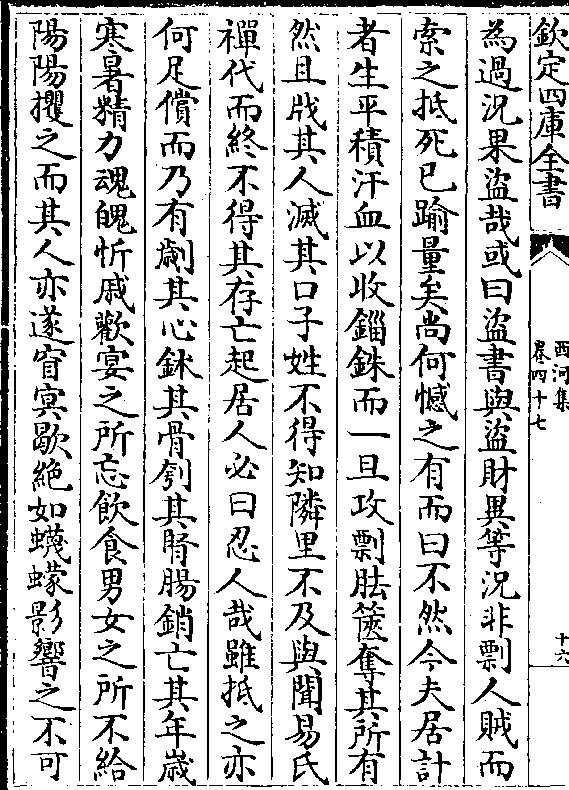 欽定四庫全書
西河集
卷四十七
十六
為過況果盜哉或曰盜書與盜財異等況非剽人賊而
索之抵死已踰量矣尚何憾之有而曰不然今夫居計
者生平積汗血以收錙銖而一旦攻剽胠篋奪其所有
然且戕其人滅其口子姓不得知隣里不及與聞易氏
禪代而終不得其存亡起居人必曰忍人哉雖抵之亦
何足償而乃有劌其心鉥其骨刳其腎腸銷亡其年歲
寒暑精力魂魄忻戚歡宴之所忘飲食男女之所不給
陽陽攫之而其人亦遂窅冥歇絶如蠛蠓影響之不可